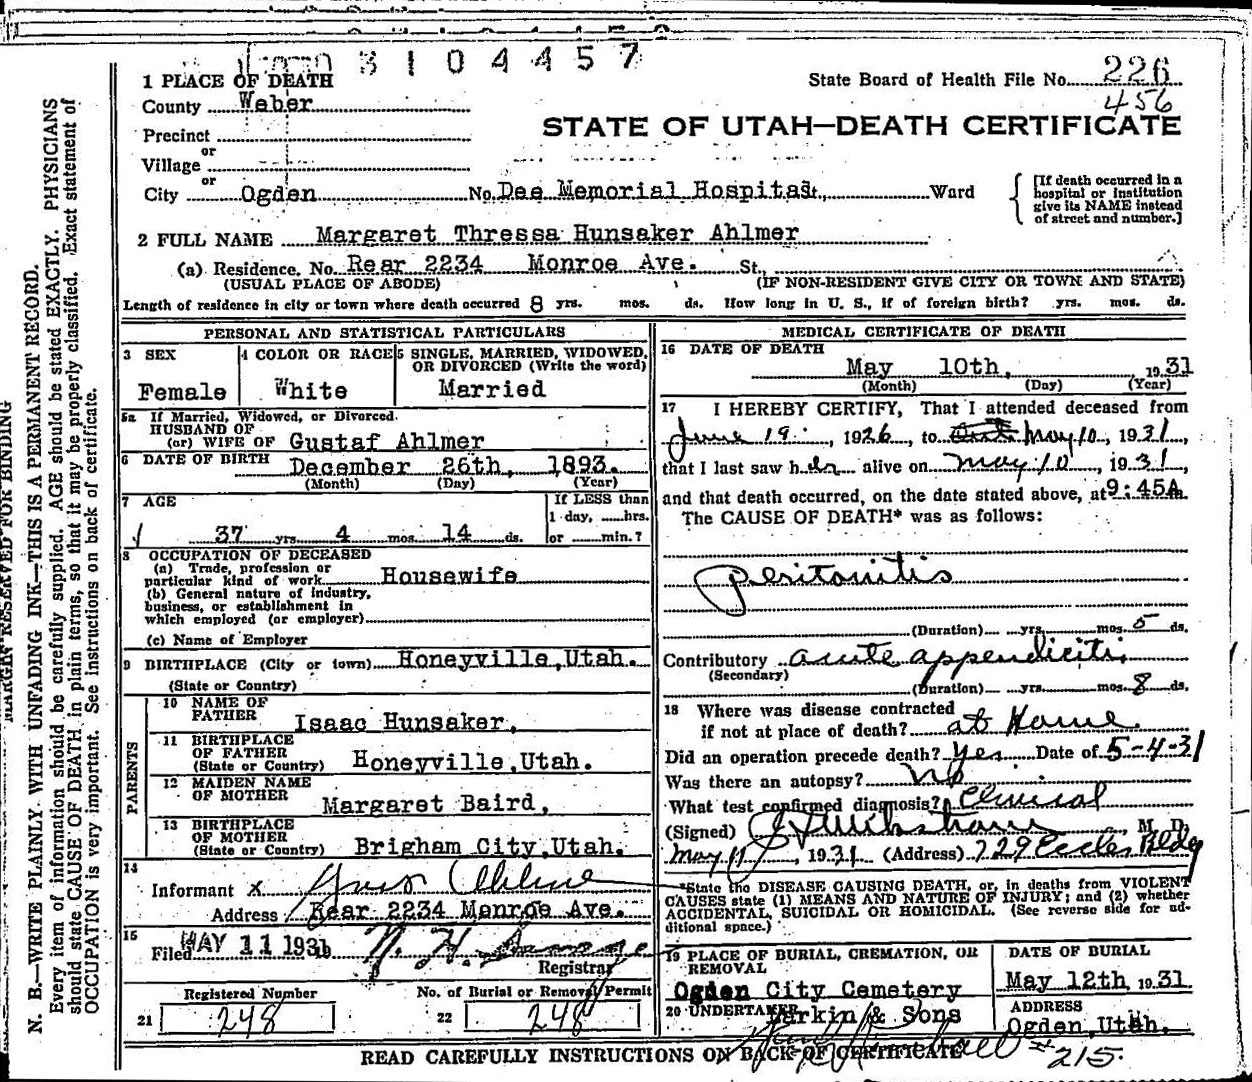 3104457
1 PLACE OF DEATH
State Board of Health File No. 226
456
County Weber
STATE OF UTAH—DEATH CERTIFICATE
Precinct
or
Village
or
City Ogden No. Dee Memorial Hospital St., Ward
[If death occurred in a
hospital or institution
give its NAME instead
of street and number.]
2 FULL NAME Margaret Thressa Hunsaker Ahlmer
(a) Residence. No. Rear 2234 Monroe Ave. St.
(USUAL PLACE OF ABODE) (IF NON-RESIDENT GIVE CITY OR TOWN AND STATE)
Length of residence in city or town where death occurred 8 yrs. mos. ds. How long in U. S., if of foreign birth? yrs. mos. ds.
PERSONAL AND STATISTICAL PARTICULARS
3 SEX
Female
4 COLOR OR RACE
White
5 SINGLE, MARRIED, WIDOWED,
OR DIVORCED (Write the word)
Married
5a If Married, Widowed, or Divorced
HUSBAND OF
(or) WIFE OF Gustaf Ahlmer
6 DATE OF BIRTH December 26th, 1893.
(Month) (Day) (Year)
7 AGE
37 yrs. 4 mos. 14 ds.
If LESS than
1 day, ......hrs.
or ......min.?
8 OCCUPATION OF DECEASED
(a) Trade, profession or
particular kind of work Housewife
(b) General nature of industry,
business, or establishment in
which employed (or employer)
(c) Name of Employer
9 BIRTHPLACE (City or town) Honeyville, Utah.
(State or Country)
PARENTS
10 NAME OF
FATHER Isaac Hunsaker,
11 BIRTHPLACE
OF FATHER
(State or Country) Honeyville, Utah.
12 MAIDEN NAME
OF MOTHER Margaret Baird,
13 BIRTHPLACE
OF MOTHER
(State or Country) Brigham City, Utah.
14
Informant x Gus Ahlmer
Address Rear 2234 Monroe Ave.
15
Filed MAY 11 1931
Registrar
Registered Number
21 248
No. of Burial or Removal Permit
22 248
MEDICAL CERTIFICATE OF DEATH
16 DATE OF DEATH
May 10th, 1931
(Month) (Day) (Year)
17 I HEREBY CERTIFY, That I attended deceased from
June 19, 1926, to May 10, 1931,
that I last saw her alive on May 10, 1931,
and that death occurred, on the date stated above, at 9:45A.
The CAUSE OF DEATH* was as follows:
Peritonitis
(Duration) yrs. mos. 5 ds.
Contributory acute appendicitis
(Secondary)
(Duration) yrs. mos. 8 ds.
18 Where was disease contracted
if not at place of death? at Home
Did an operation precede death? Yes Date of 5-4-31
Was there an autopsy? no
What test confirmed diagnosis? Clinical
(Signed) M. D.
May 11, 1931 (Address) 729 Eccles Bldg
*State the DISEASE CAUSING DEATH, or, in deaths from VIOLENT
CAUSES state (1) MEANS AND NATURE OF INJURY; and (2) whether
ACCIDENTAL, SUICIDAL OR HOMICIDAL. (See reverse side for ad-
ditional space.)
19 PLACE OF BURIAL, CREMATION, OR
REMOVAL
Ogden City Cemetery
DATE OF BURIAL
May 12th, 1931.
20 UNDERTAKER Larkin & Sons
ADDRESS
Ogden, Utah.
# 215
READ CAREFULLY INSTRUCTIONS ON BACK OF CERTIFICATE
MARGIN RESERVED FOR BINDING
N. B.—WRITE PLAINLY WITH UNFADING INK—THIS IS A PERMANENT RECORD.
Every item of information should be carefully supplied. AGE should be stated EXACTLY. PHYSICIANS
should state CAUSE OF DEATH in plain terms, so that it may be properly classified. Exact statement of
OCCUPATION is very important. See instructions on back of certificate.